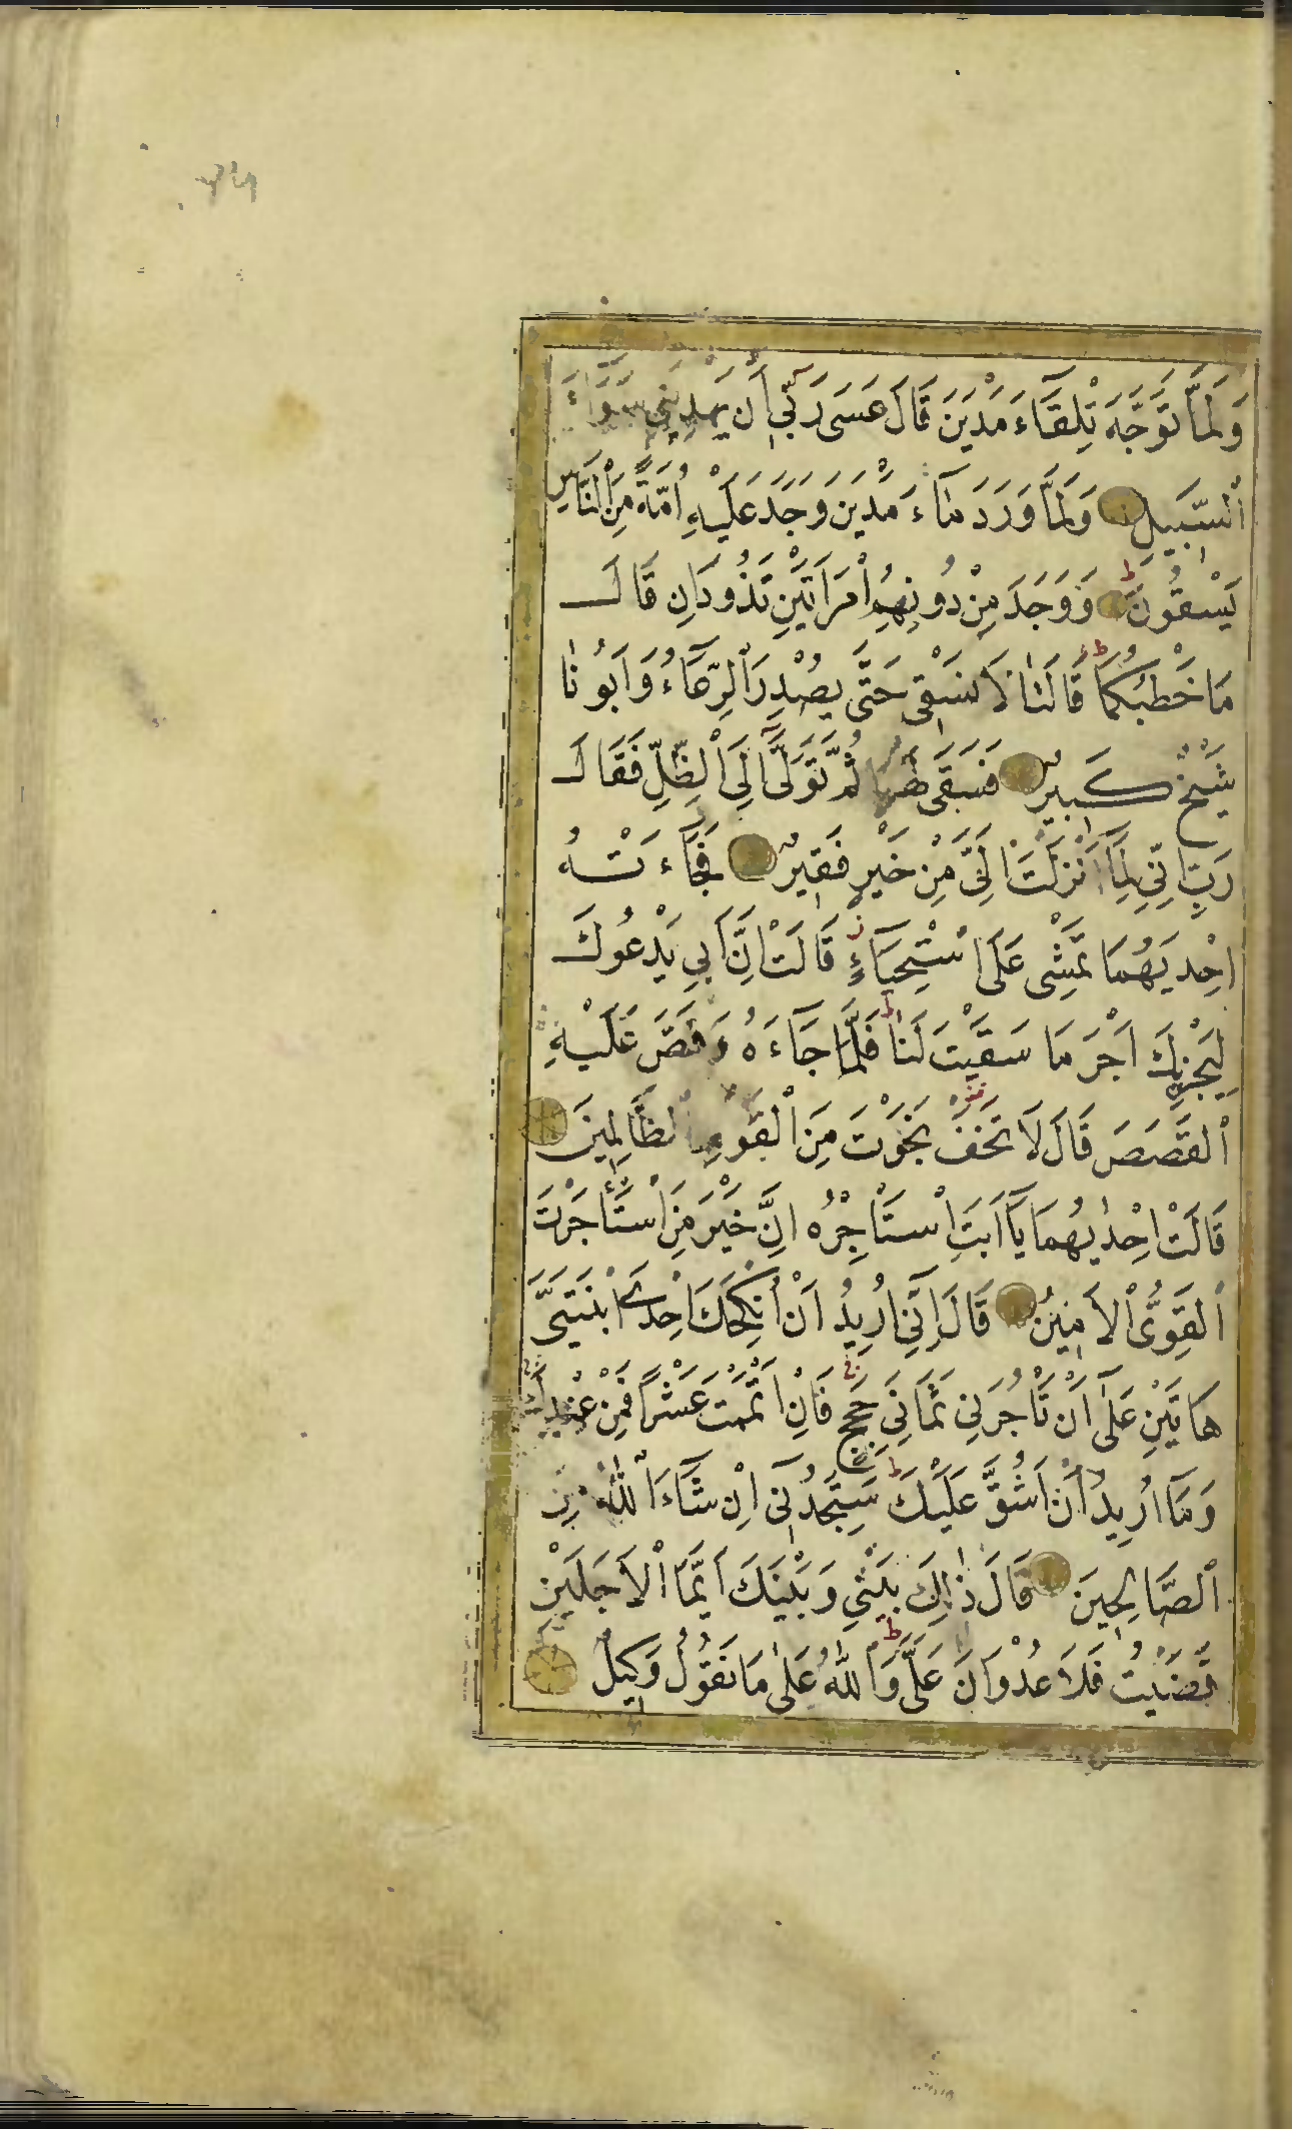 وَلَمَّا تَوَجَّهَ تِلْقَآءَ مَدْيَنَ قَالَ عَسَى رَبِّٓي اَنْ يَهْدِيَنِي سَوَآءَ
ٱلسَّبِيلِ وَلَمَّا وَرَدَ مَآءَ مَدْيَنَ وَجَدَ عَلَيْهِ اُمَّةً مِنَ ٱلنَّاسِ
يَسْقُونَ وَوَجَدَ مِنْ دُونِهِمُ ٱمْرَاَتَيْنِ تَذُودَانِ قَالَ
مَا خَطْبُكُمَا قَالَتَا لَا نَسْقِى حَتَّى يُصْدِرَ ٱلرِّعَآءُ وَاَبُونَا
شَيْخٌ كَبِيرٌ فَسَقَى لَهُمَا ثُمَّ تَوَلَّٓى اِلَى ٱلظِّلِّ فَقَالَ
رَبِّ اِنِّي لِمَٓا اَنْزَلْتَ اِلَىَّ مِنْ خَيْرٍ فَقِيرٌ فَجَآءَتْهُ
اِحْدٰيهُمَا تَمْشِى عَلَى ٱسْتِحْيَآءٍ قَالَتْ اِنَّ اَبِي يَدْعُوكَ
لِيَجْزِيَكَ اَجْرَ مَا سَقَيْتَ لَنَا فَلَمَّا جَآءَهُ وَقَصَّ عَلَيْهِ
ٱلْقَصَصَ قَالَ لَا تَخَفْ نَجَوْتَ مِنَ ٱلْقَوْمِ ٱلظَّالِمِينَ
قَالَتْ اِحْدٰيهُمَا يَٓا اَبَتِ ٱسْتَأْجِرْهُ اِنَّ خَيْرَ مَنِ ٱسْتَأْجَرْتَ
ٱلْقَوِىُّ ٱلْاَمِينُ قَالَ اِنِّٓي اُرِيدُ اَنْ اُنْكِحَكَ اِحْدَى ٱبْنَتَىَّ
هَاتَيْنِ عَلَٓى اَنْ تَأْجُرَنِي ثَمَانِيَ حِجَجٍ فَاِنْ اَتْمَمْتَ عَشْرًا فَمِنْ عِنْدِكَ
وَمَٓا اُرِيدُ اَنْ اَشُقَّ عَلَيْكَ سَتَجِدُنِٓي اِنْ شَآءَ ٱللّٰهُ مِنَ
ٱلصَّالِحِينَ قَالَ ذٰلِكَ بَيْنِي وَبَيْنَكَ اَيَّمَا ٱلْاَجَلَيْنِ
قَضَيْتُ فَلَا عُدْوَانَ عَلَىَّ وَٱللّٰهُ عَلٰى مَا نَقُولُ وَكِيلٌ